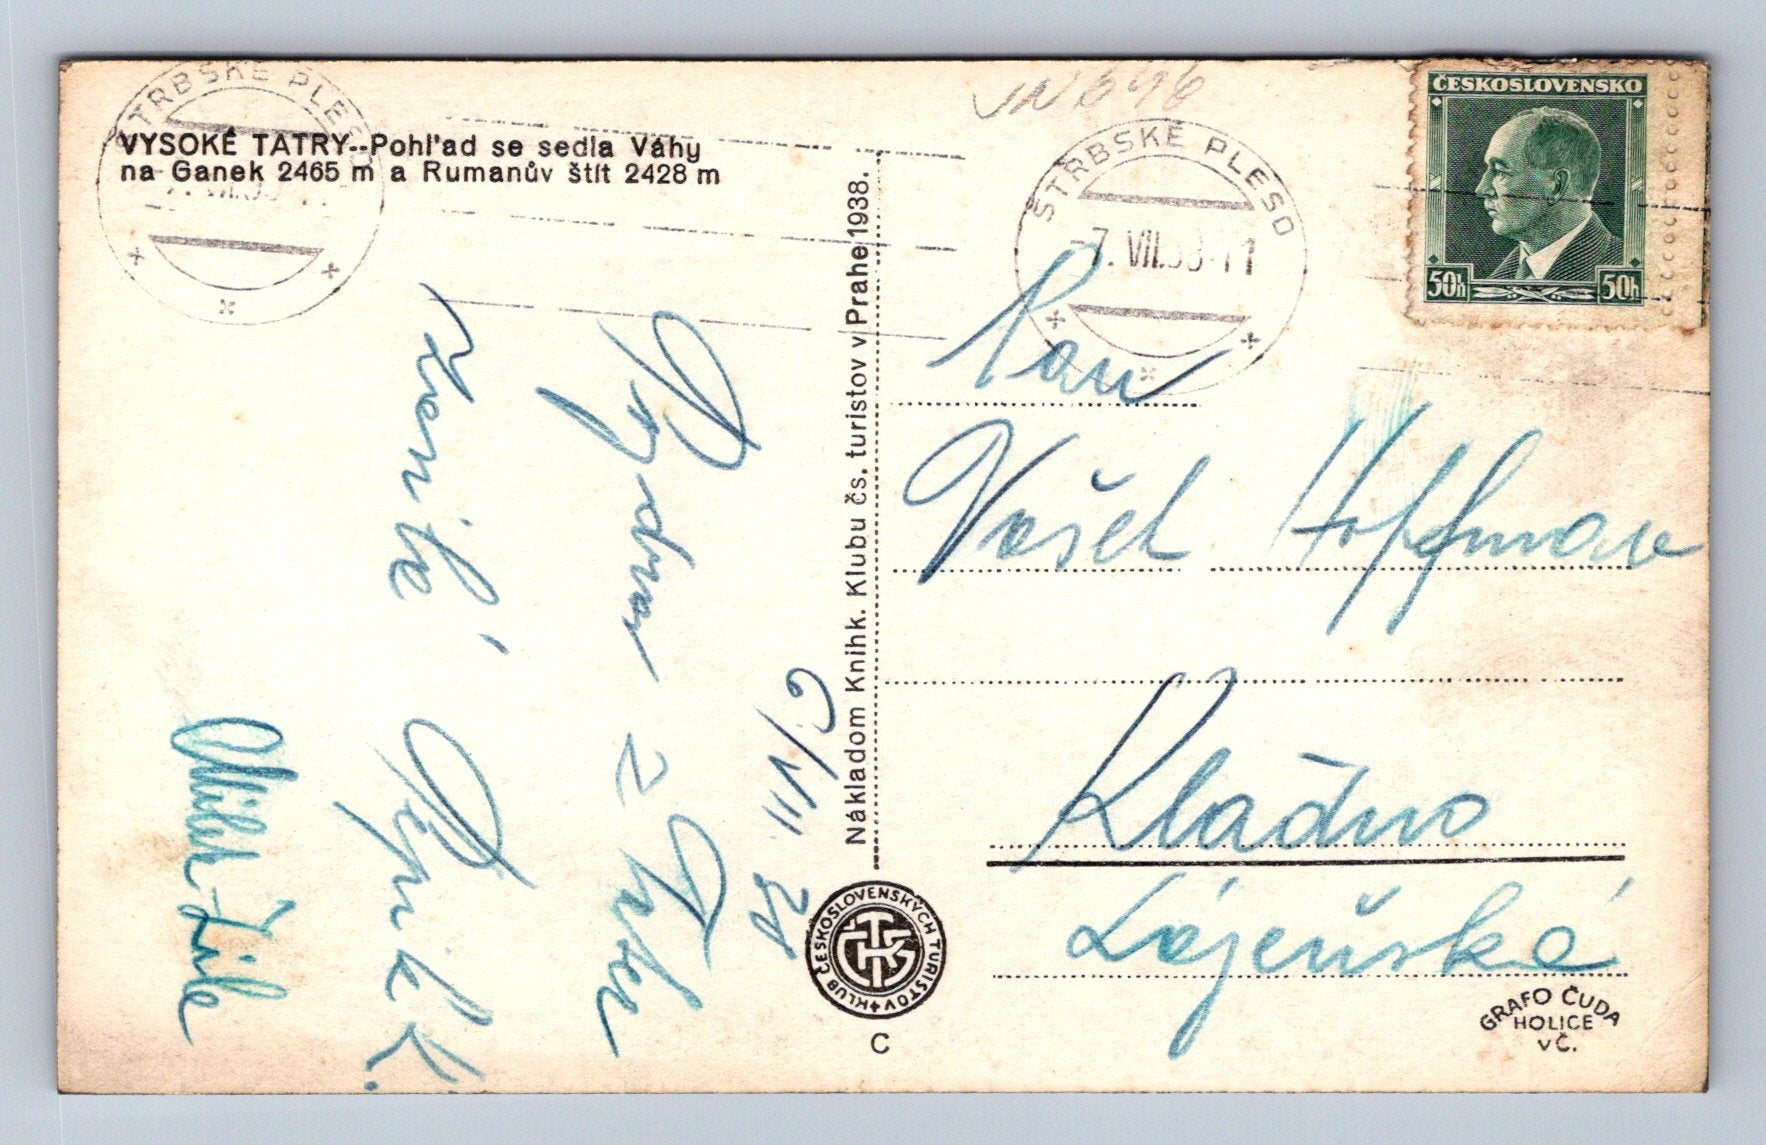 ŠTRBSKÉ PLESO
VYSOKÉ TATRY--Pohl'ad se sedla Váhy
na Ganek 2465 m a Rumanův štít 2428 m
Pozdrav z Tater
6/VII. 38
Pepík K.
Nákladom Knihk. Klubu čs. turistov v Prahe 1938.
KLUB ČESKOSLOVENSKÝCH TURISTOV
KČT
C
ŠTRBSKÉ PLESO
-7. VII.38-11
ČESKOSLOVENSKO
50h 50h
Pan
Vašek Hoffman
Kladno
GRAFO ČUDA
HOLICE
v Č.